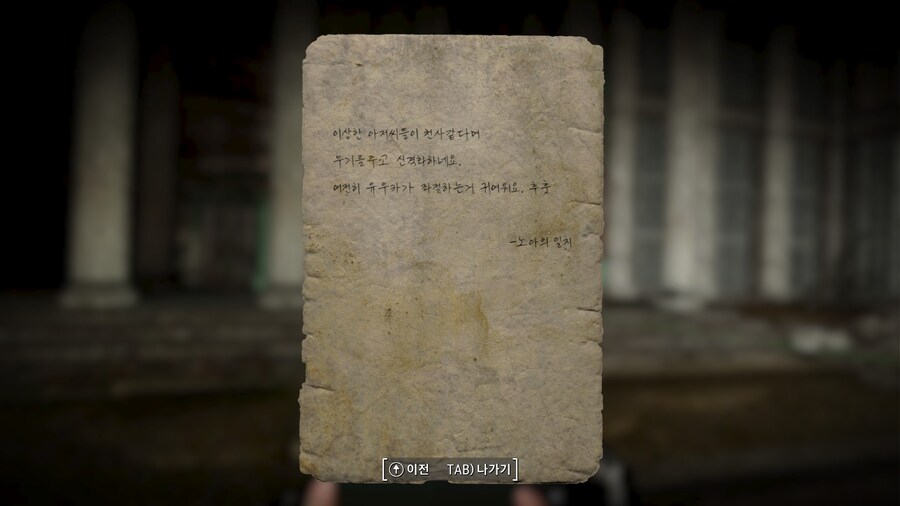 이상한 아저씨들이 천사같다며
무기를주고 신격화하네요.
여전히 유우카가 좌절하는거 귀여워요. 후훗
-노아의 일지
이전 TAB) 나가기